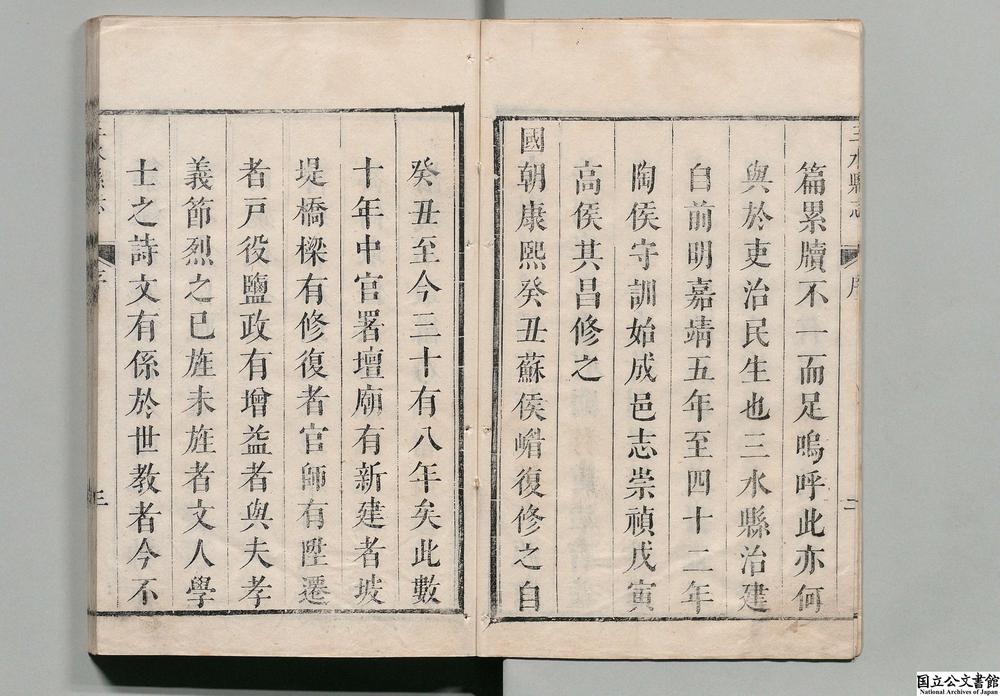 三水縣志
序
二
篇累牘不一而足嗚呼此亦何
與於吏治民生也三水縣治建
自前明嘉靖五年至四十二年
陶侯守訓始成邑志崇禎戊寅
高侯其昌修之
國朝康熙癸丑蘇侯嵋復修之自
癸丑至今三十有八年矣此數
十年中官署壇廟有新建者坡
堤橋樑有修復者官師有陞遷
者戸役鹽政有增益者與夫孝
義節烈之已旌未旌者文人學
士之詩文有係於世教者今不
三水縣志
序
三
国立公文書館
National Archives of Japan